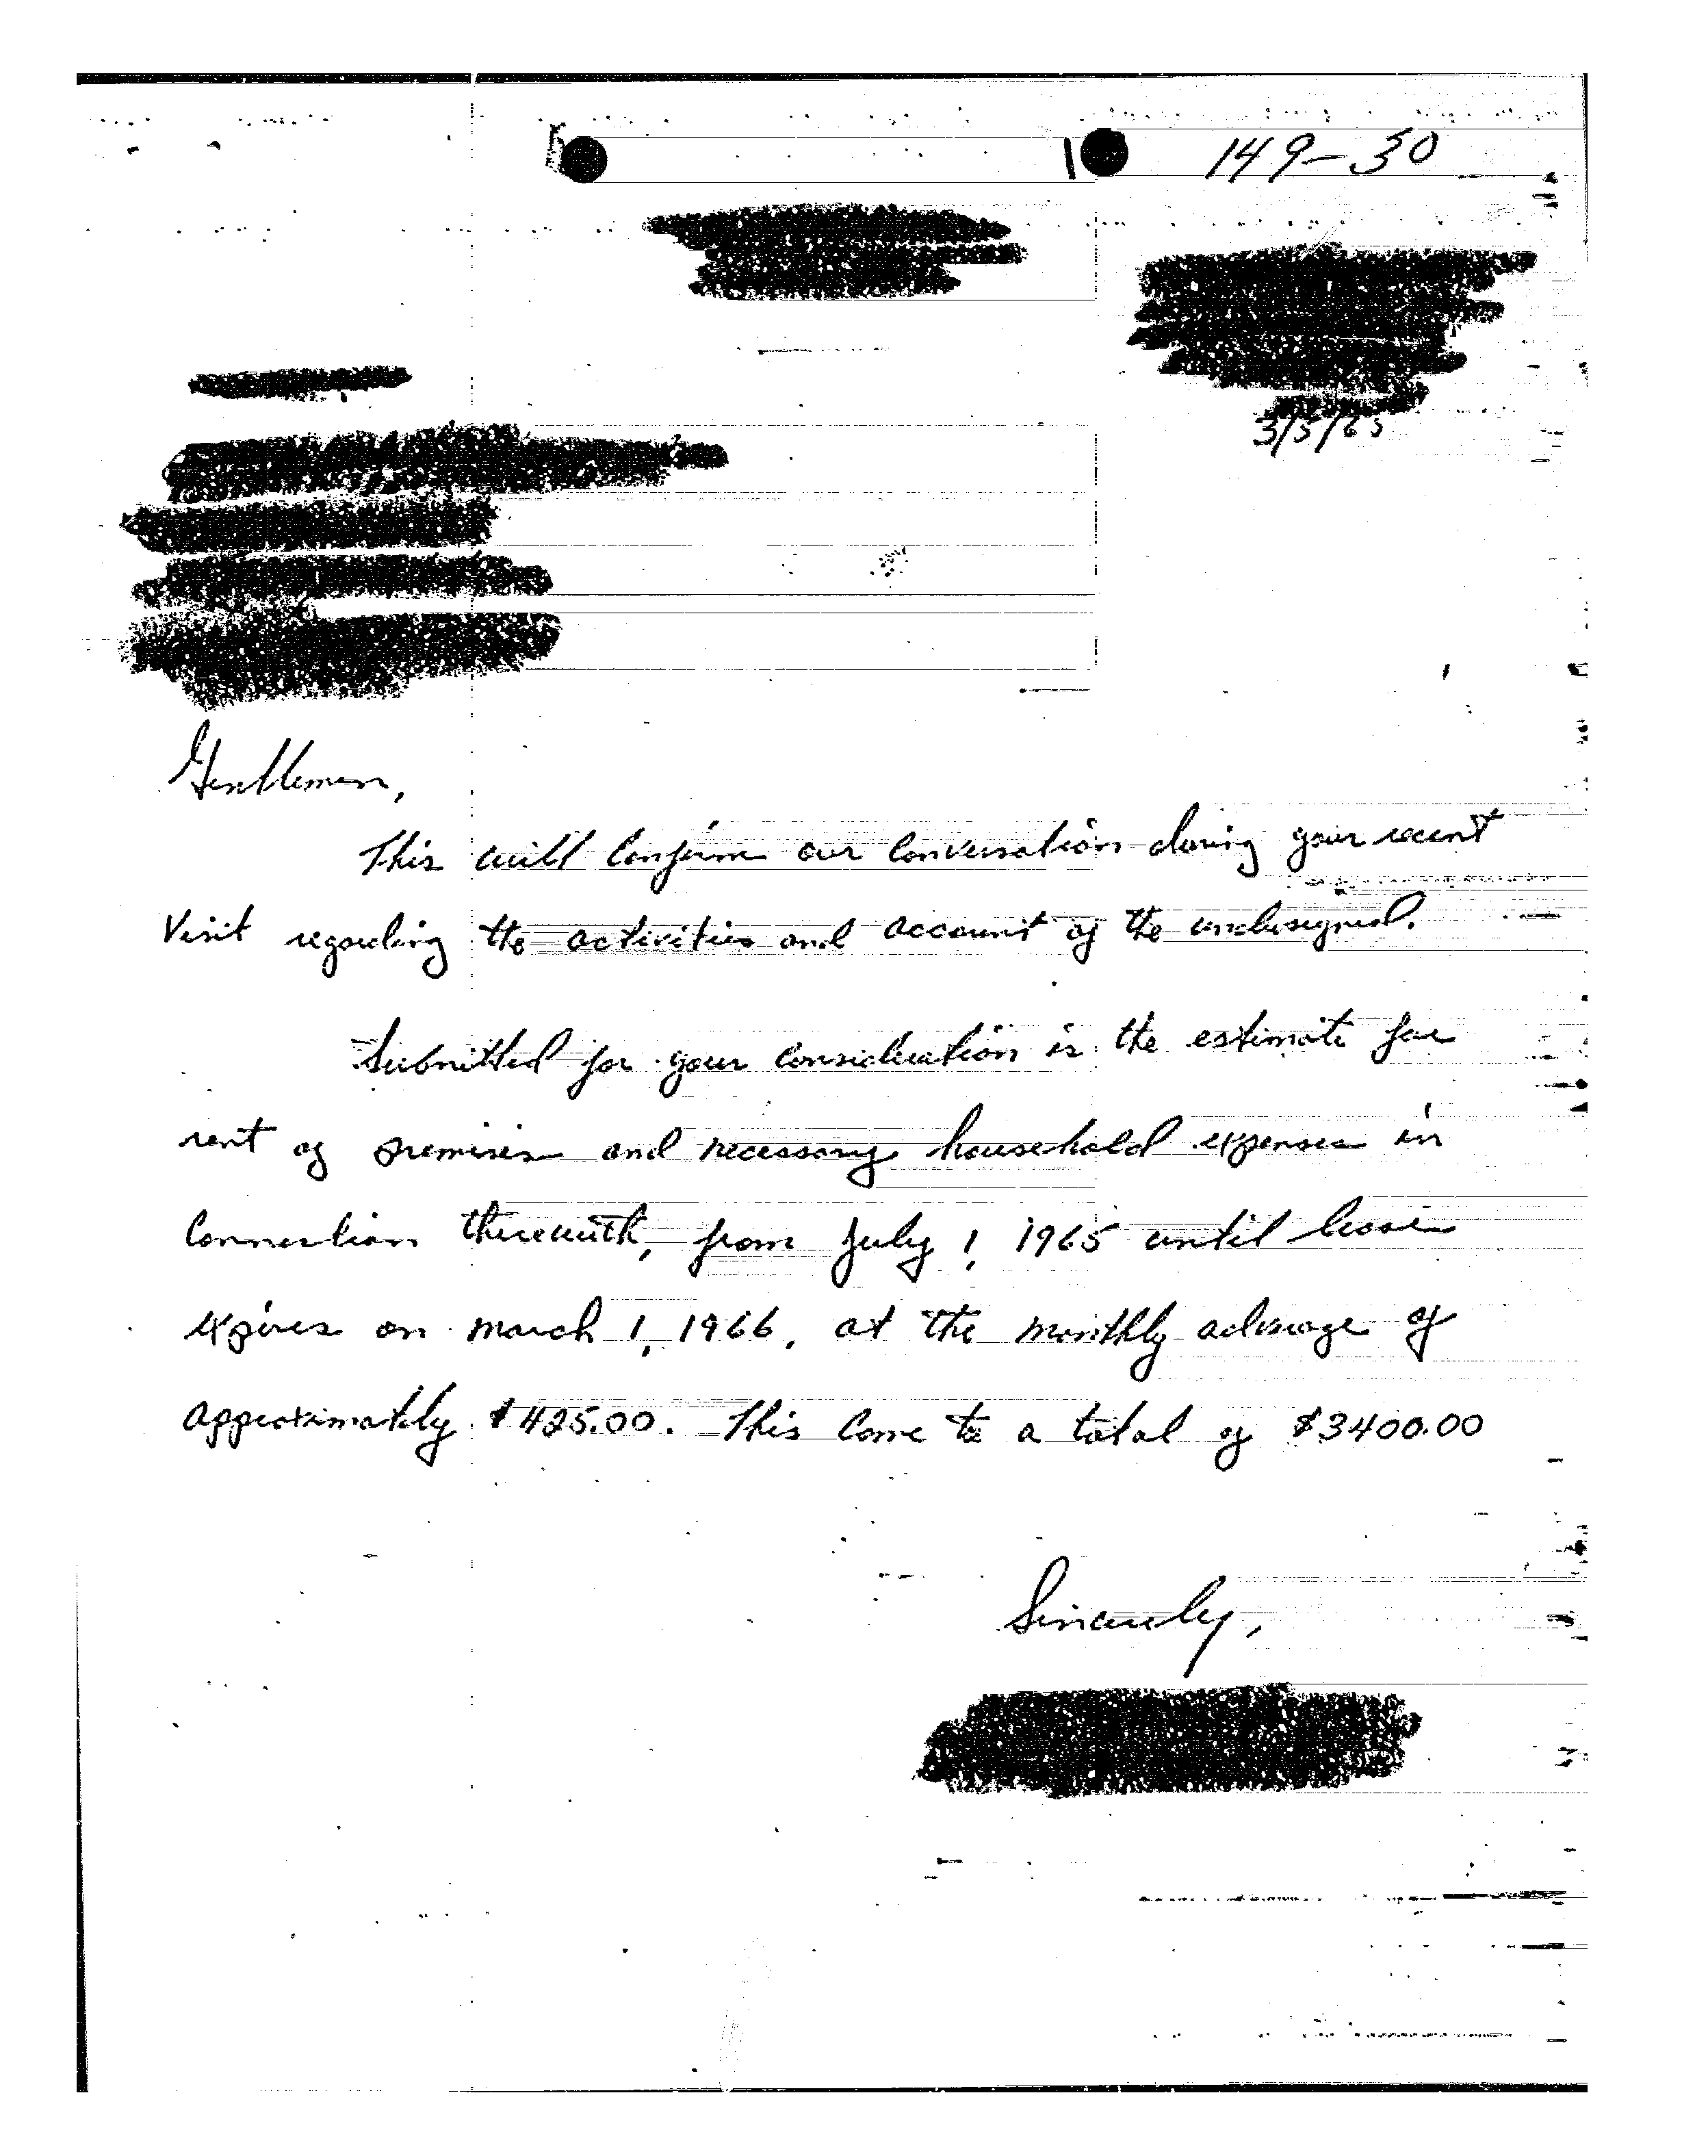 149-30
3/5/65
Gentlemen,
This will confirm our conversation during your recent
visit regarding the activities and account of the undersigned.
Submitted for your consideration is the estimate for
rent of premises and necessary household expenses in
connection therewith, from July 1, 1965 until lease
expires on march 1, 1966, at the monthly adverage of
approximately $425.00. This come to a total of $3400.00
Sincerely,